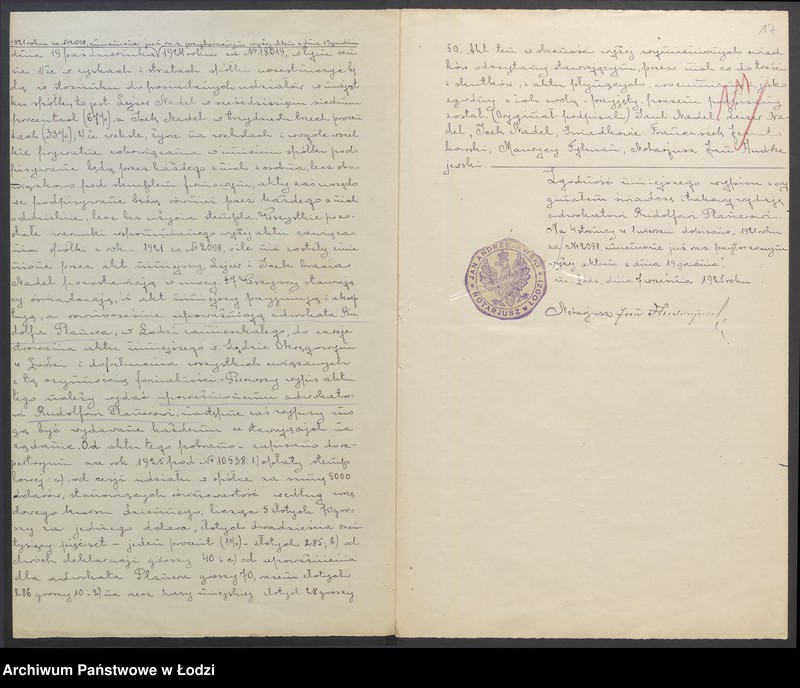 1921 roku za № 2098, zmienione już raz przytoczonym wyżej aktem z dnia 19 grudnia
dnia 19 października 1921 roku za № 18019, w tym sen-
sie: 1) że w zyskach i stratach spółki uczestniczyć bę-
dą w stosunku do posiadanych udziałów w mająt-
ku spółki, to jest Lejzer Nadel w sześćdziesięciu siedmiu
procentach (67%), a Icek Nadel w trzydziestu trzech procen-
tach (33%); 2) że weksle, żyra na wekslach i wogóle wszel-
kie prywatne zobowiązania w imieniu spółki pod-
pisywane będą przez każdego z nich z osobna, lecz obo-
wiązkowo pod stemplem firmowym, akty zaś urzędo-
we podpisywane będą również przez każdego z nich
oddzielnie, lecz bez użycia stempla. Wszystkie pozo-
stałe warunki wspomnianego wyżej aktu zawiąza-
nia spółki z roku 1921 za № 2098, o ile nie zostały zmie-
nione przez akt niniejszy, Lejzer i Icek bracia
Nadel pozostawiają w mocy. 3) Wszyscy stawają-
cy oświadczają, iż akt niniejszy przyjmują i akcep-
tują, a równocześnie upoważniają adwokata Ru-
dolfa Planera, w Łodzi zamieszkałego, do zareje-
strowania aktu niniejszego w Sądzie Okręgowym
w Łodzi i dopełnienia wszystkich związanych
z tą czynnością formalności. Pierwszy wypis aktu
tego należy wydać upoważnionemu adwokato-
wi Rudolfowi Planerowi, następne zaś wypisy mo-
gą być wydawane każdemu ze stawających na
żądanie. Od aktu tego pobrano i zapisano do re-
pertorjum za rok 1925 pod № 10538: 1) opłaty stemp-
lowej: a) od cesji udziału w spółce za sumę 5000
dolarów, stanowiących równowartość według urzę-
dowego kursu dziennego, licząc 5 złotych 70 gro-
szy za jednego dolara, złotych dwadzieścia osiem
tysięcy pięćset – jeden procent (1%) – złotych 285; b) od
dwóch deklaracji groszy 40 i c) od upoważnienia
dla adwokata Planera groszy 70, razem złotych
286 groszy 10 – 2) na rzecz kasy miejskiej złotych 28 groszy
17
50. Akt ten w obecności wyżej wymienionych świad-
ków odczytany stawającym, przez nich co do treści
i skutków, z aktu płynących, zrozumiany, jako
zgodny z ich wolą – przyjęty, poczem podpisany
został. (Oryginał podpisali:) Saul Nadel, Lejzer Na-
del, Icek Nadel, Świadkowie: Franciszek
kowski, Maurycy Fylman, Notarjusz Jan Andrze-
jewski.
Zgodność niniejszego wypisu z ory-
ginałem świadczę i takowy wydaję
adwokatowi Rudolfowi Planerowi.
Na 4 stronicy u wiersza dopisano: 1921 roku
za № 2098, zmienione już raz przytoczonym
wyżej aktem z dnia 19 grudnia.
Łódź, dnia 7 września 1925 roku.
Notarjusz Jan Andrzejewski
JAN ANDRZEJEWSKI
NOTARJUSZ W ŁODZI
Archiwum Państwowe w Łodzi